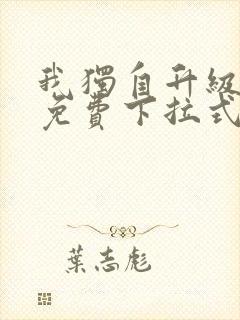 我獨自升級
免費下拉式
葉志彪